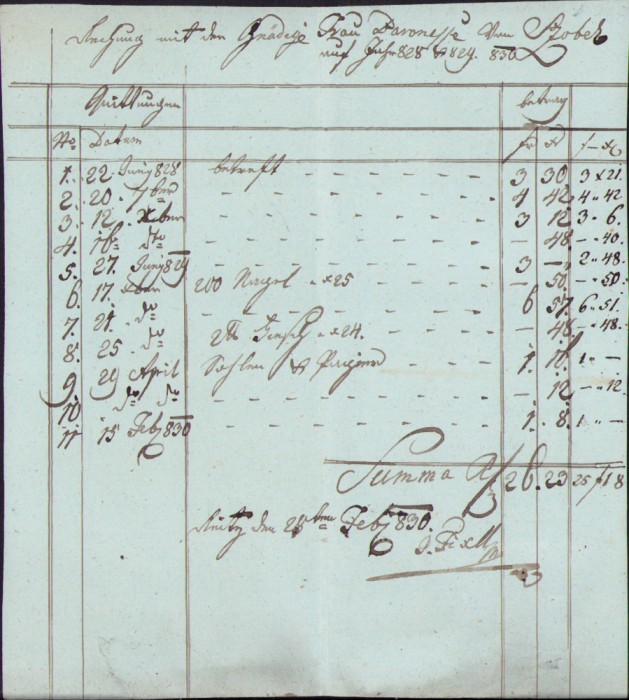 Rechnung mit der Gnädige Frau Baronesse von Zobel
auf Jahr 828 & 829. 830
Quittungen betrag
No Datum fr x f x
1. 22. Juny 828 betreft - - - 3 30 3 x 21.
2. 20. 7ber - - - 4 42 4 " 42
3. 12. Xber - - - 3 12 3 " 6.
4. 16. do - - - - 48 - " 40.
5. 27. Juny 829 - - - 3 - 2 " 48.
6. 17. 200 Nagel a x 25 - 50 - " 50.
7. 21. do - - - 6 57 6 " 51.
8. 25. do a x 24. - 48 - " 48.
9 29 April Sohlen & - - - 1. 1 " -
10 do do - - - - 12 - " 12
11 15 Feb 830 - - - 1. 8. 1 " -
Summa 26. 23 25 f 18
den Feb 830.